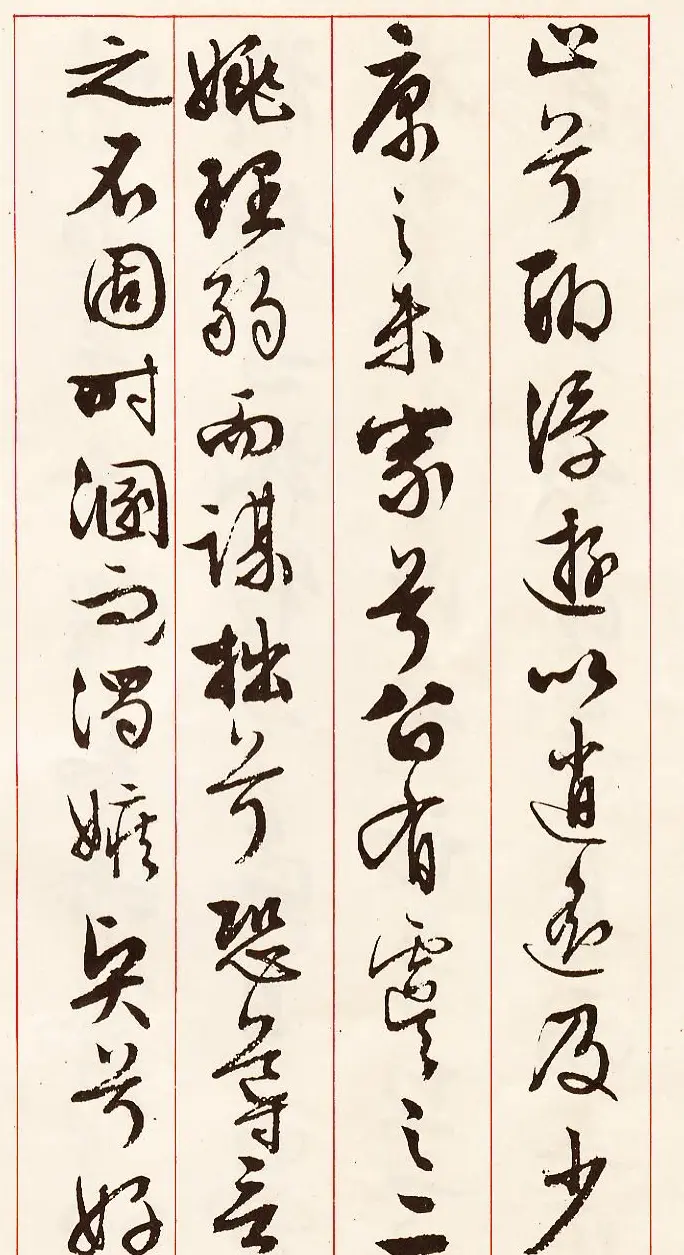 止兮聊浮遊以逍遙及少
康之未家兮留有虞之二
姚理弱而謀拙兮恐導言
之不固時溷而濁嫉賢兮好